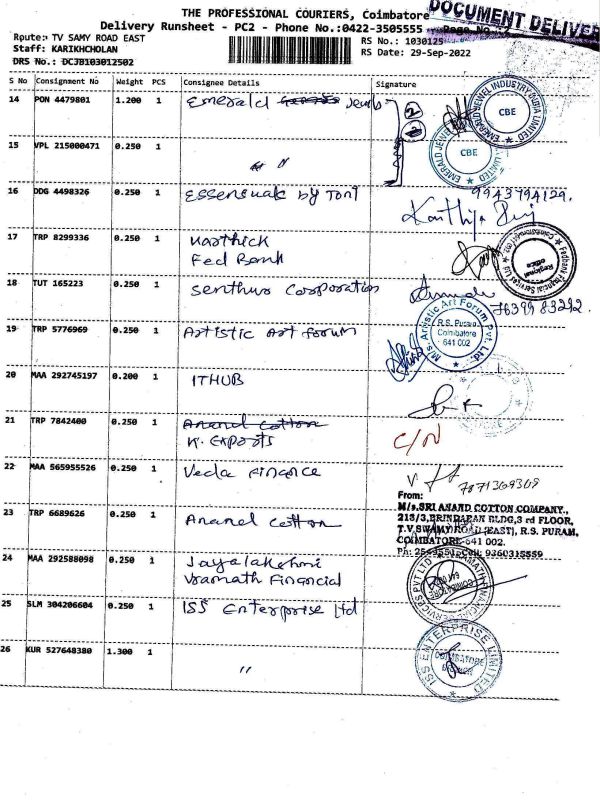 THE PROFESSIONAL COURIERS, Coimbatore
DOCUMENT DELIVER
Delivery Runsheet - PC2 - Phone No.:0422-3505555
Route:- TV SAMY ROAD EAST
RS No.: 1030125
Staff: KARIKHCHOLAN
RS Date: 29-Sep-2022
DRS No.: DCJB103012502
S No Consignment No Weight PCS Consignee Details Signature
14 PON 4479801 1.200 1 Emerald Jewels
EMERALD JEWEL INDUSTRY INDIA LIMITED
CBE
15 VPL 215000471 0.250 1 "
EMERALD JEWEL LIMITED
CBE
16 DDG 4498326 0.250 1 Essensuals by Toni
9943794129.
17 TRP 8299336 0.250 1 Karthick
Fed Bank
Fedbank Financial Services Ltd
Regional office
18 TUT 165223 0.250 1 Senthur Corporation
76399 83292.
19 TRP 5776969 0.250 1 Artistic Art forum
M/s. Artistic Art Forum Pvt. Ltd.
R.S. Puram
Coimbatore
641 002
20 MAA 292745197 0.200 1 ITHUB
21 TRP 7842400 0.250 1 Anand Cotton
K. Exports
C/N
22 MAA 565955526 0.250 1 Veda Finance
7871369369
23 TRP 6689626 0.250 1 Anand Cotton
From:
M/s.SRI ANAND COTTON COMPANY.,
213/3,BRINDABAN BLDG,3 rd FLOOR,
T.V.SWAMY ROAD (EAST), R.S. PURAM,
COIMBATORE-641 002.
Cell: 9360315559
24 MAA 292588098 0.250 1 Jayalakshmi
Vramath Financial
25 SLM 304206604 0.250 1 ISS Enterprise Ltd
26 KUR 527648380 1.300 1 "
ISS ENTERPRISE LIMITED
COIMBATORE